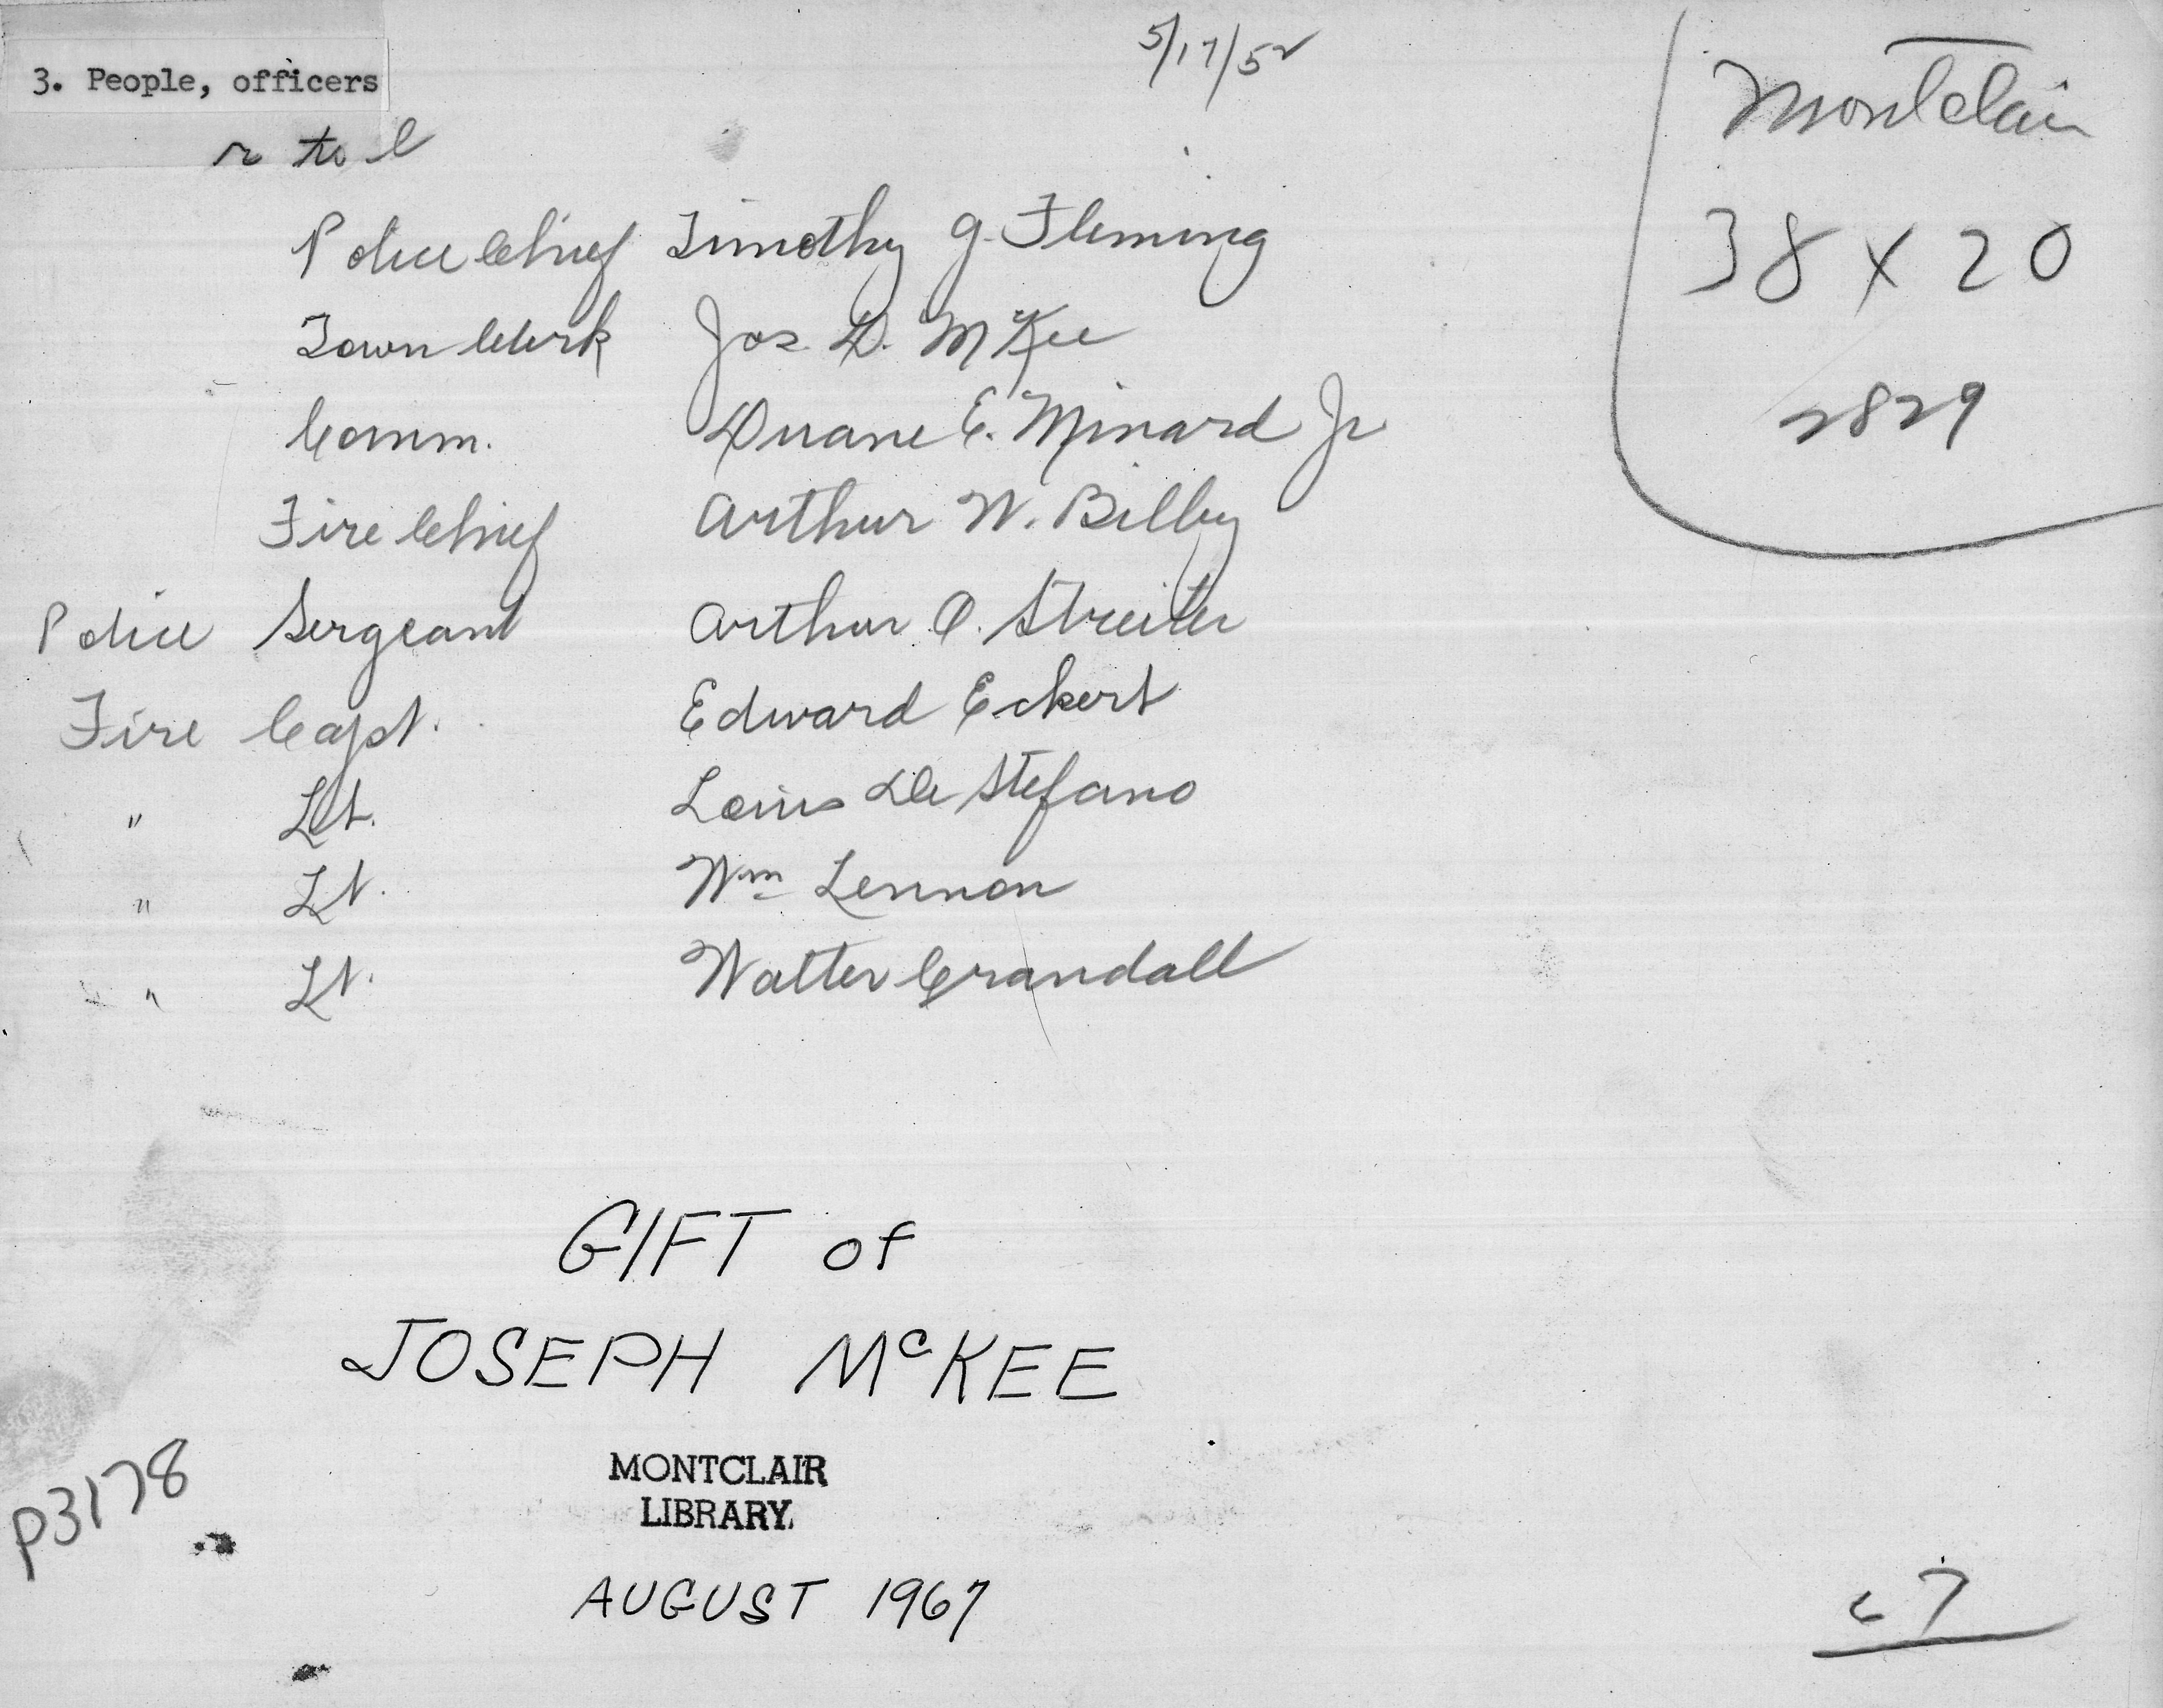 5/17/52
3. People, officers
r to l
Police Chief Timothy G. Fleming
Town Clerk Jos. D. McKee
Comm. Duane E. Minard Jr
Fire Chief Arthur W. Bilby
Police Sergeant Arthur O. Streiter
Fire Capt. Edward Eckert
" Lt. Louis De Stefano
" Lt. Wm Lennon
" Lt. Walter Crandall
Montclair
38 x 20
2829
GIFT of
JOSEPH McKEE
MONTCLAIR
LIBRARY.
AUGUST 1967
P3178